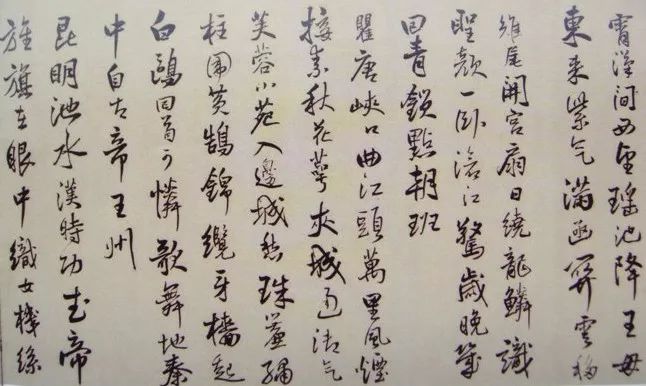 霄漢间西望瑶池降王母
東来紫气满函関雲移
雉尾開宫扇日繞龍鱗識
聖颜一卧滄江驚歲晚幾
回青鎖點朝班
瞿唐峡口曲江頭萬里風煙
接素秋花萼夾城通御气
芙蓉小苑入邊城愁珠簾繡
柱圍黄鵠錦纜牙樯起
白鷗回首可憐歌舞地秦
中自古帝王州
昆明池水漢時功武帝
旌旗在眼中織女機絲